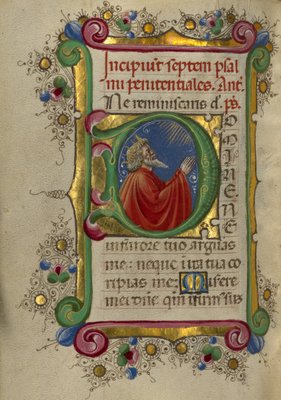 Incipiunt septem psal
mi penitentiales. Ant.
Ne reminiscaris d. ps
DOMINE NE
in furore tuo arguas
me: neque in ira tua co
ripias me: Misere
mei dne qm infirmus